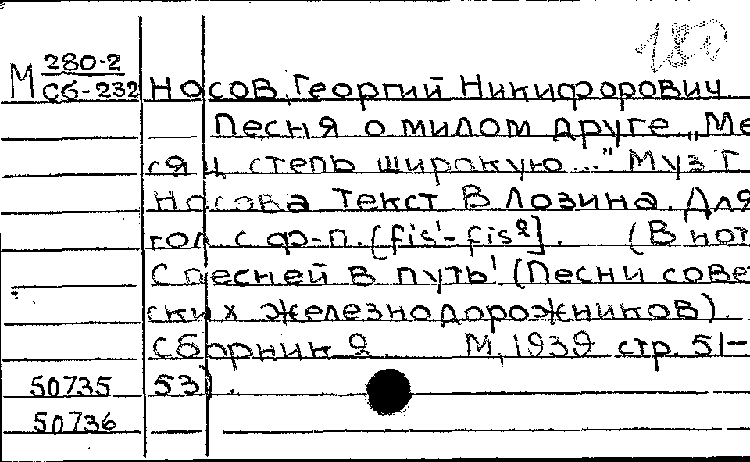 180
М 280-2
Сб-232 Носов, Георгий Никифорович
Песня о милом друге „Ме
сяц степь широкую..." Муз Г
Носова Текст В Лозина. Для
гол с ф-п. [fis¹-fis²]. (В нот
С песней в путь! (Песни сове
ских железнодорожников)
Сборник 2 М, 1939 стр. 51-
50735 53).
50736